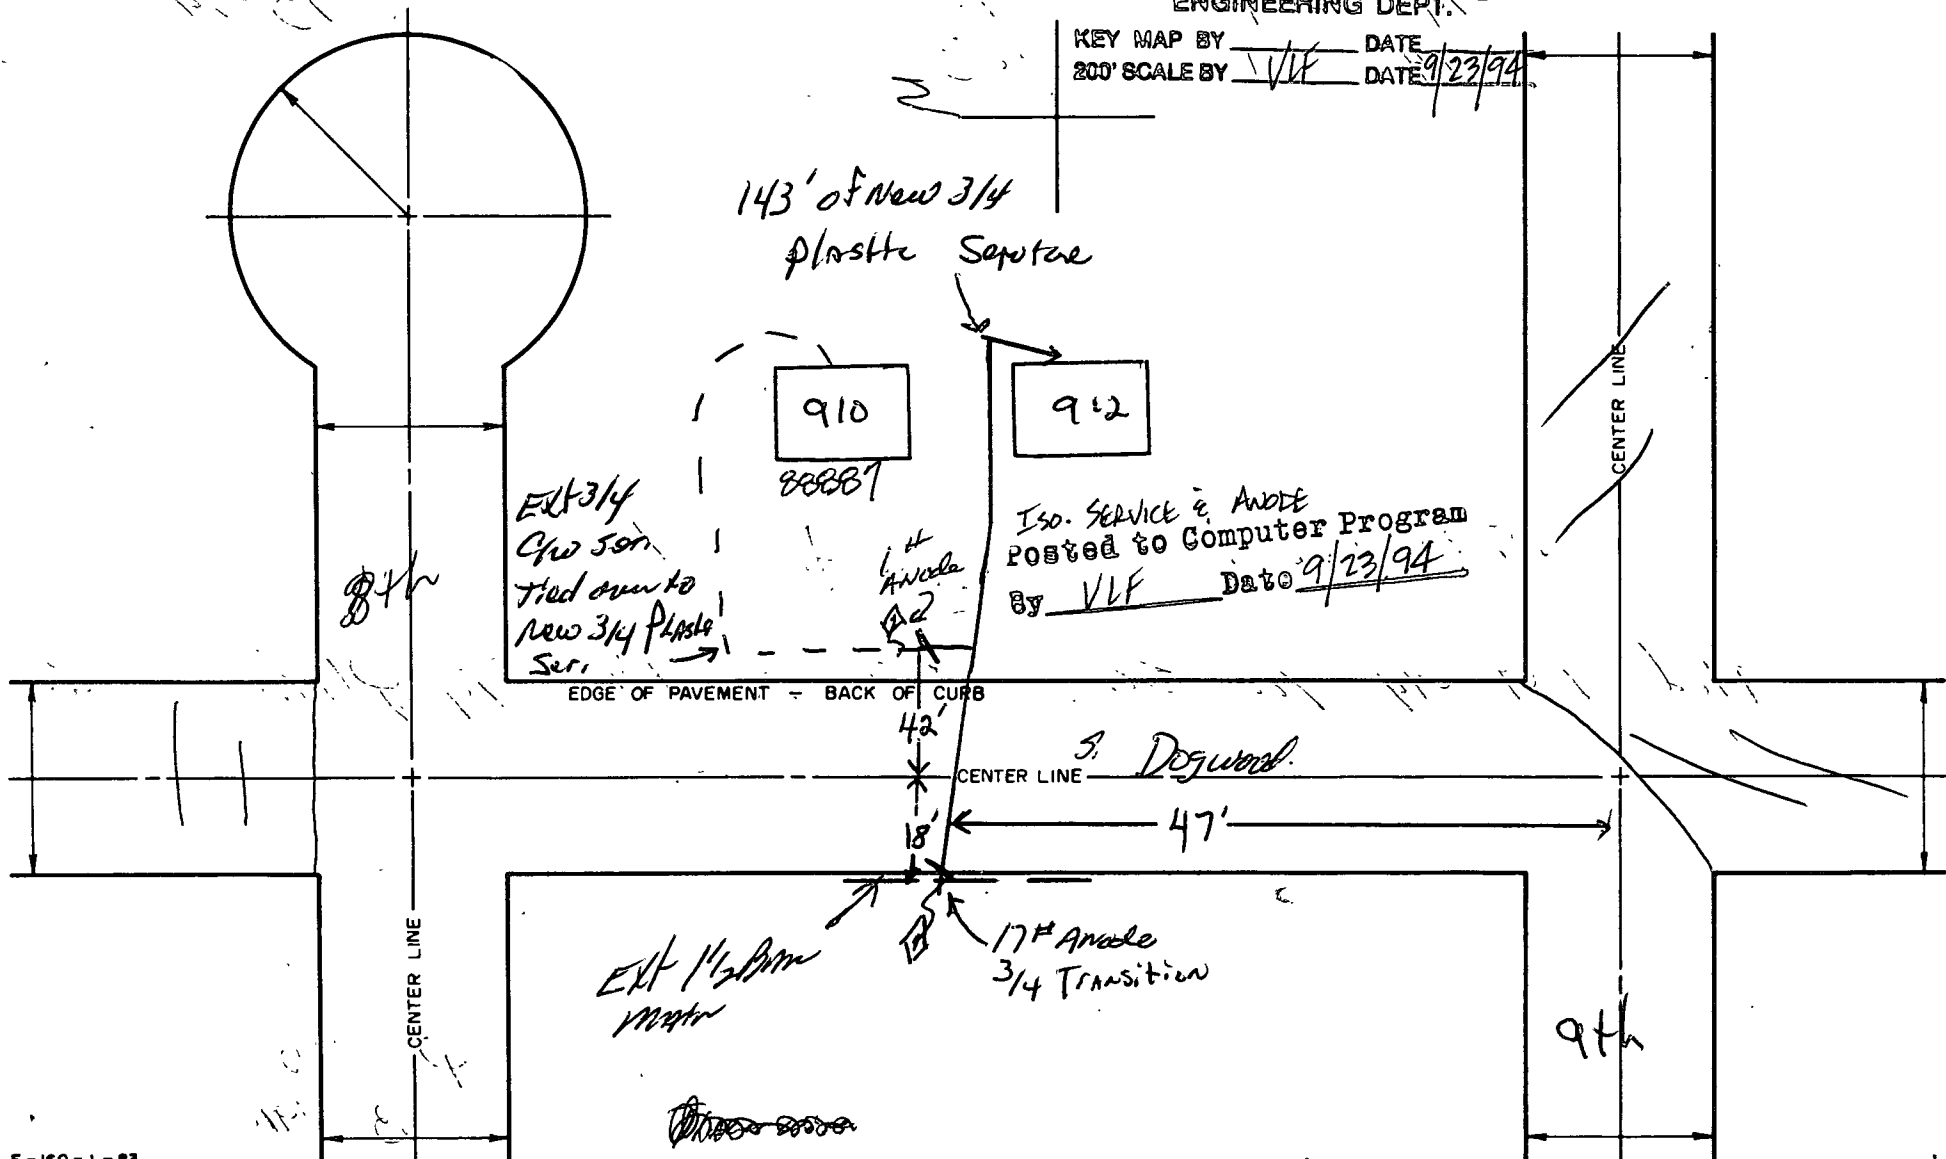 ENGINEERING DEPT.
KEY MAP BY DATE
200' SCALE BY VLF DATE 9/23/94
143' of New 3/4
Plastic
910
912
88887
Ext 3/4
C/W
Tied over to
New 3/4 Plastic
Ser.
1#
Anode
ISO. SERVICE & ANODE
Posted to Computer Program
By VLF Date 9/23/94
8th
CENTER LINE
EDGE OF PAVEMENT - BACK OF CURB
42'
CENTER LINE
S. Dogwood.
18'
47'
17# Anode
3/4 Transition
Ext 1 1/2
CENTER LINE
9th